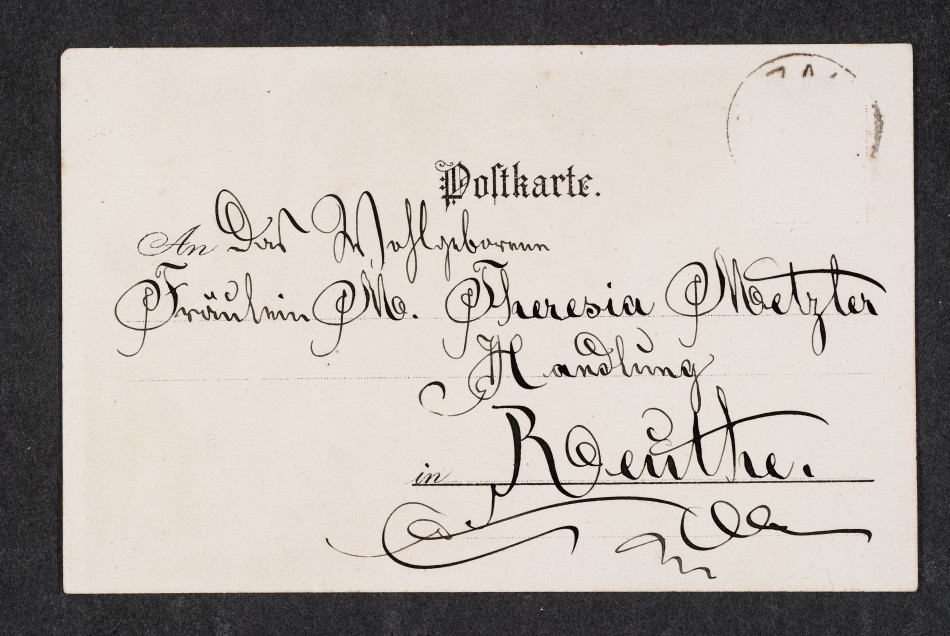 Postkarte.
An Das Wohlgeborene
Fräulein M. Theresia Metzler
Handlung
in Reuthe.